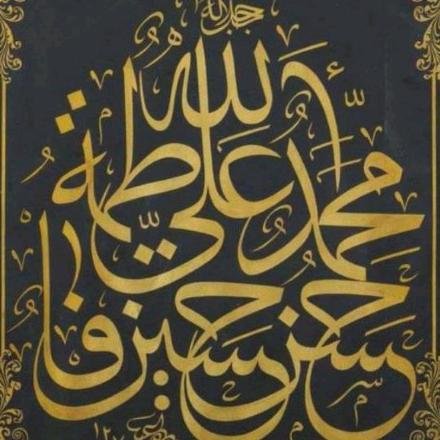 جل جلاله
الله
محمد علي فاطمة
حسن حسين